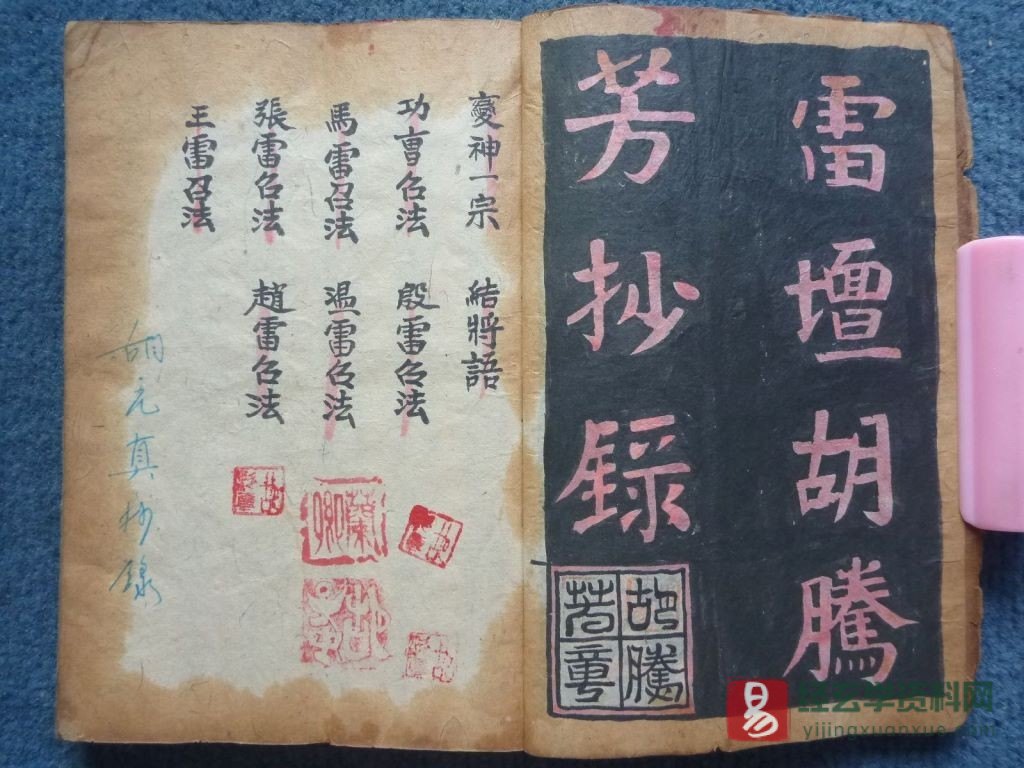 雷壇胡騰
芳抄錄
胡騰
芳章
變神一宗 結將語
功曹召法 殷雷召法
馬雷召法 温雷召法
張雷召法 趙雷召法
王雷召法
胡元真抄錄
易
资料网
yijingxuanxue.com